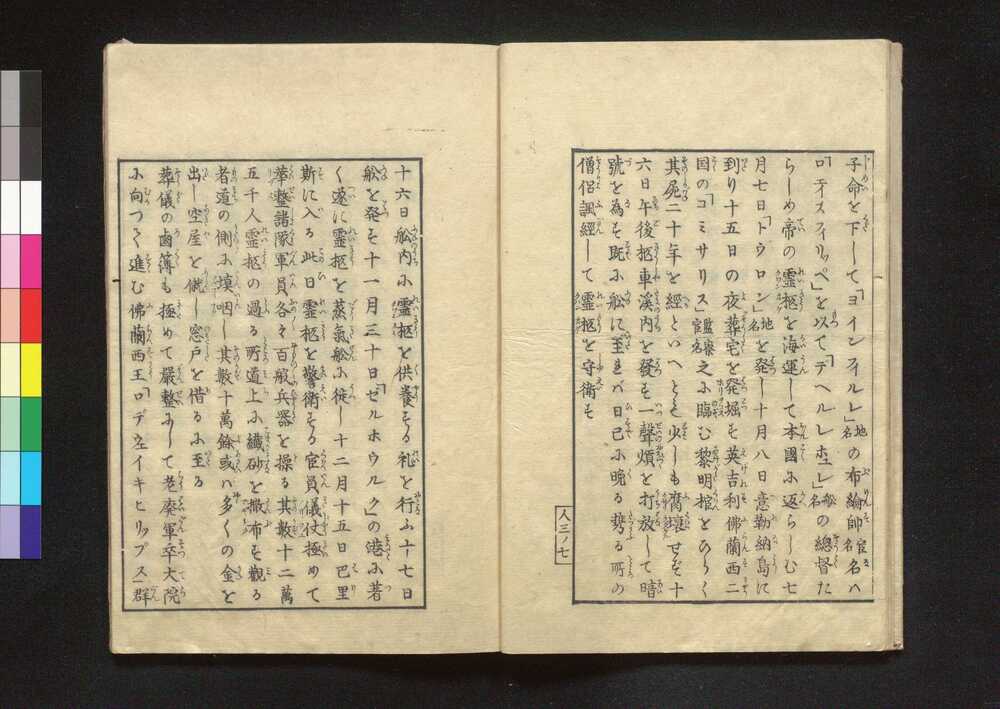 子命を下して「ヨインフイルレ」地名の布綸帥官名名ハ
「ロオスフイリッペ」を以て「テヘルレホエレ」舩名の總督た
らしめ帝の霊柩を海運して本國に返らしむ七
月七日「トウロン」地名を発し十月八日意勒納島に
到り十五日の夜葬宅を発掘す英吉利佛蘭西二
国の「コミサリス」監察官名之に臨む黎明棺をひらく
其屍二十年を經といへとも少しも腐壊せず十
六日午後柩車溪内を發す一聲煩を打放して暗
號を為す既に舩に至れバ日已に晩る勢る所の
僧侶諷經して霊柩を守衛す
人三ノ七
十六日舩内に霊柩を供養する礼を行ふ十七日
舩を発す十一月三十日「ゼルホウルク」の港に著
く遂に霊柩を蒸氣舩に徙し十二月十五日巴里
斯に入る此日霊柩を警衛する官員儀仗極めて
華整諸隊軍員各々百般兵器を操る其数十二萬
五千人霊柩の過る所道上に纎砂を撒布す觀る
者道の側に填咽し其數十萬餘或ハ多くの金を
出し空屋を僦し窓戸を借るに至る
葬儀の鹵簿も極めて嚴整にして老癈軍卒大院
に向つて進む佛蘭西王「ロデウエイキヒリップス」群